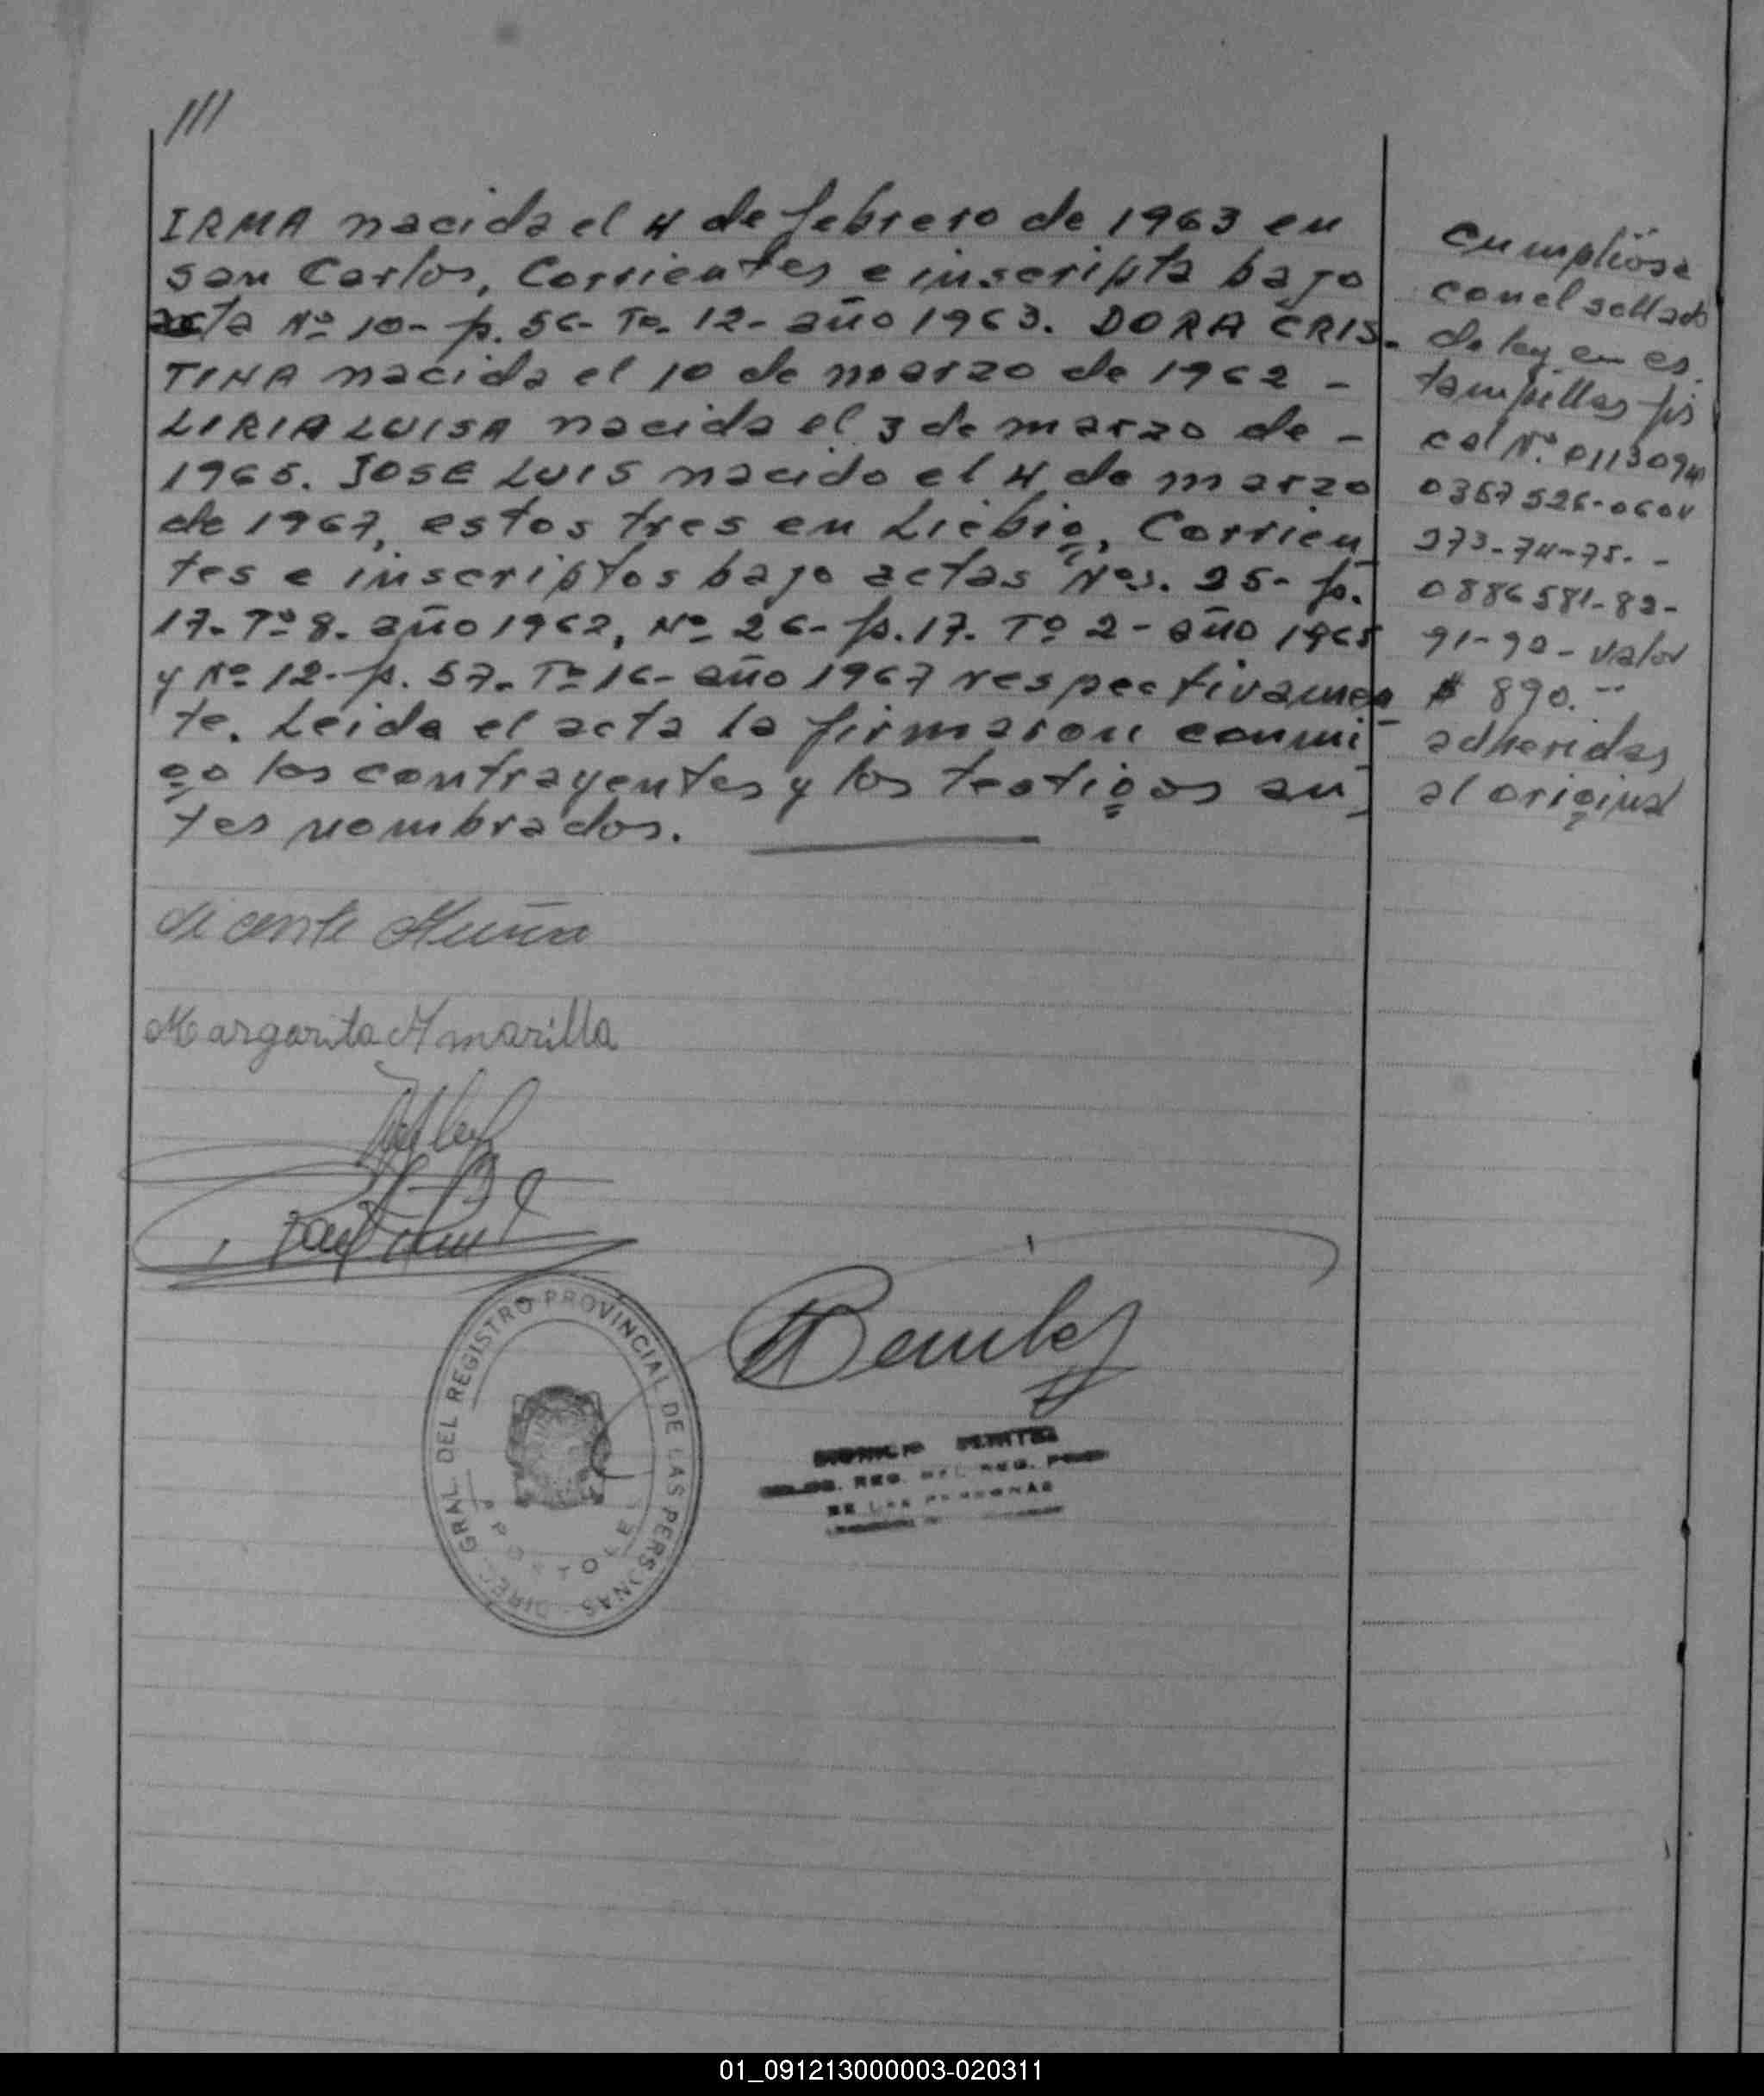 ///
IRMA nacida el 4 de febrero de 1963 en
San Carlos, Corrientes e inscripta bajo
acta Nº 10- p. 56- Tº. 12- año 1963. DORA CRIS-
TINA nacida el 10 de marzo de 1962 -
LIRIA LUISA nacida el 3 de marzo de -
1965. JOSE LUIS nacido el 4 de marzo
de 1967, estos tres en Liebig, Corrien
tes e inscriptos bajo actas Nos. 25- p.
17. Tº 8. año 1962, Nº 26- p. 17. Tº 2- año 1965
y Nº 12- p. 57. Tº 16- año 1967 respectivamen
te. Leida el acta la firmaron conmi
go los contrayentes y los testigos an
tes nombrados.
Cumplióse
con el sellado
de ley en es
tampillas fis
cal Nº.
0367526-0604
273-74-75. -
0886581-82-
91-90- valor
$ 890.--
adheridas
al original
Vicente
Margarita Amarilla
DIREC. GRAL. DEL REGISTRO PROVINCIAL DE LAS PERSONAS
APOSTOLES
BENITEZ
DE LAS PERSONAS
01_091213000003-020311